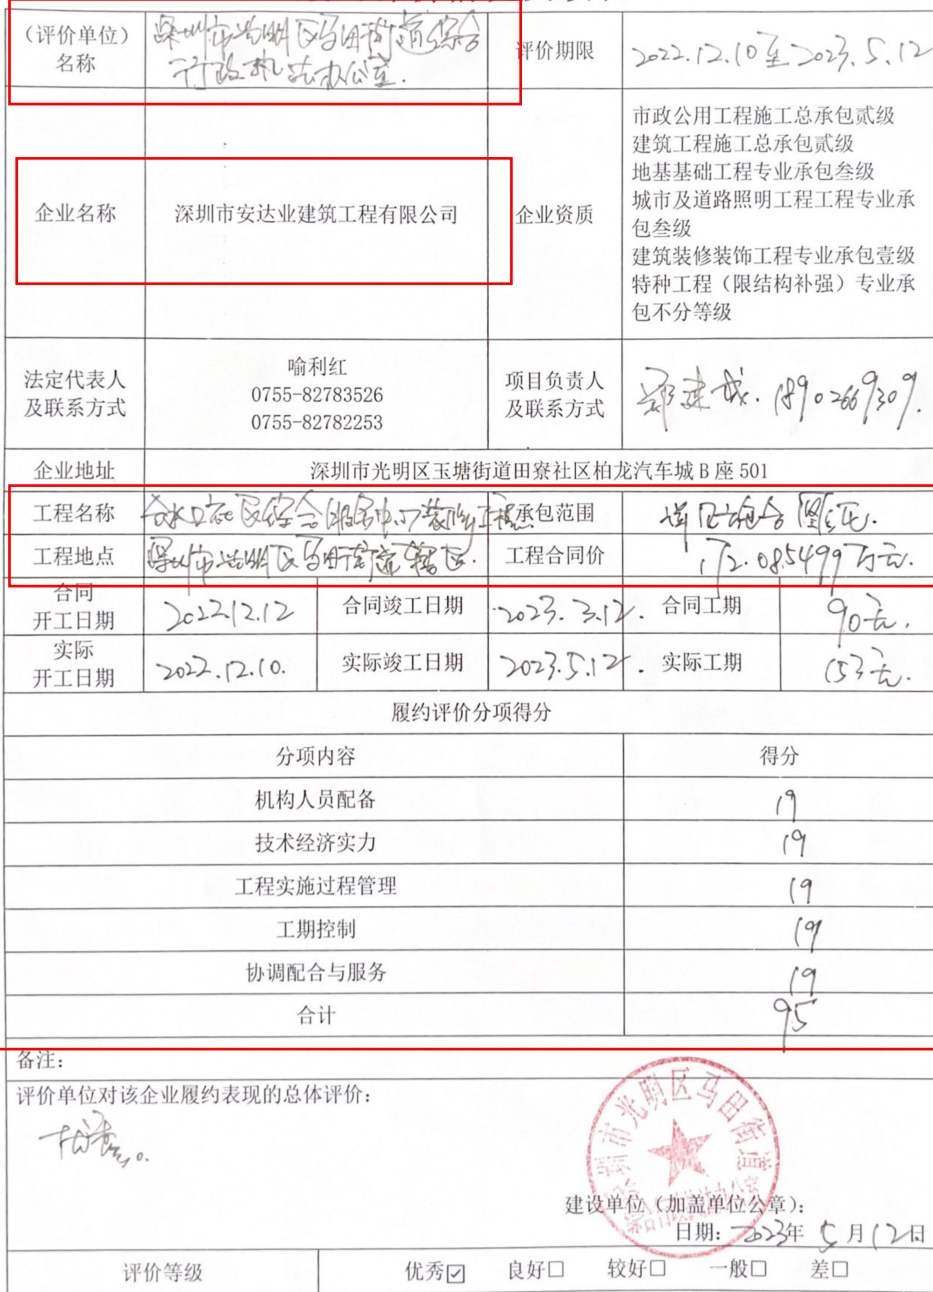 （评价单位）
名称
深圳市光明区马田街道综合
行政执法办公室.
评价期限
2022.12.10至2023.5.12
企业名称
深圳市安达业建筑工程有限公司
企业资质
市政公用工程施工总承包贰级
建筑工程施工总承包贰级
地基基础工程专业承包叁级
城市及道路照明工程工程专业承
包叁级
建筑装修装饰工程专业承包壹级
特种工程（限结构补强）专业承
包不分等级
法定代表人
及联系方式
喻利红
0755-82783526
0755-82782253
项目负责人
及联系方式
郑建城. 18902669309.
企业地址
深圳市光明区玉塘街道田寮社区柏龙汽车城 B 座 501
工程名称
社区综合服务中心装修工程
承包范围
详见施工图纸.
工程地点
深圳市光明区马田街道辖区.
工程合同价
172.085499万元.
合同
开工日期
2022.12.12
合同竣工日期
2023.3.12.
合同工期
90天.
实际
开工日期
2022.12.10.
实际竣工日期
2023.5.12
实际工期
153天.
履约评价分项得分
分项内容
得分
机构人员配备
19
技术经济实力
19
工程实施过程管理
19
工期控制
19
协调配合与服务
19
合计
95
备注：
评价单位对该企业履约表现的总体评价：
深圳市光明区马田街道
建设单位（加盖单位公章）：
日期：2023年 5 月 12 日
评价等级
优秀☑ 良好□ 较好□ 一般□ 差□